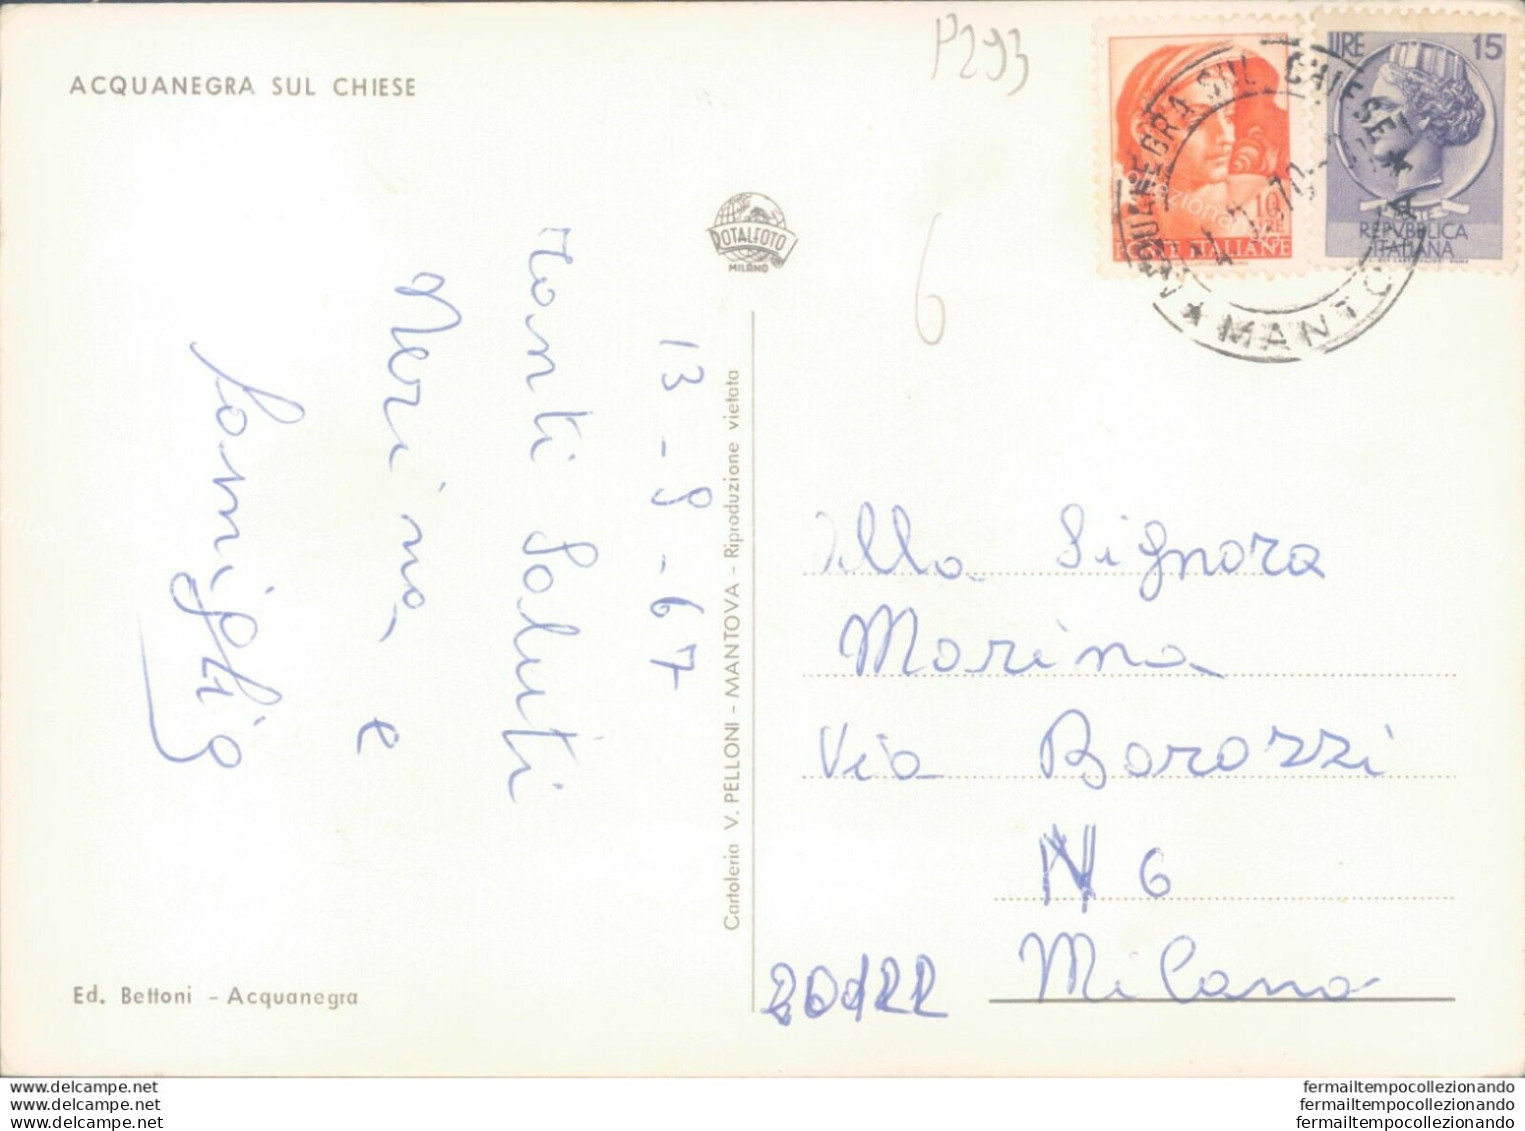 ACQUANEGRA SUL CHIESE
P293
6
LIRE 15
REPVBBLICA
ITALIANA
10
LIRE
POSTE ITALIANE
ACQUANEGRA SUL CHIESE
★ MANTOVA ★
ROTALFOTO
MILANO
13-9-67
Tanti Saluti
Nerina, e
Famiglia
Cartoleria V. PELLONI - MANTOVA - Riproduzione vietata
Alla Signora
Marina
Via Barozzi
N 6
20122 Milano
Ed. Bettoni - Acquanegra
www.delcampe.net
www.delcampe.net
www.delcampe.net
fermailtempocollezionando
fermailtempocollezionando
fermailtempocollezionando